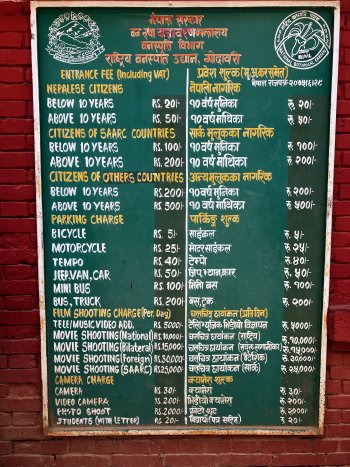 नेपाल सरकार
वन तथा वातावरण मन्त्रालय
वनस्पति विभाग
राष्ट्रिय वनस्पति उद्यान, गोदावरी
ENTRANCE FEE (Including VAT) प्रवेश शुल्क (मू.अ.कर समेत)
NEPALESE CITIZENS नेपाली नागरिक
BELOW 10 YEARS RS. 20/- १० वर्ष मुनिका रु. २०/-
ABOVE 10 YEARS RS. 50/- १० वर्ष माथिका रु. ५०/-
CITIZENS OF SAARC COUNTRIES सार्क मुलुकका नागरिक
BELOW 10 YEARS RS. 100/- १० वर्ष मुनिका रु. १००/-
ABOVE 10 YEARS RS. 200/- १० वर्ष माथिका रु. २००/-
CITIZENS OF OTHERS COUNTRIES अन्य मुलुकका नागरिक
BELOW 10 YEARS RS. 200/- १० वर्ष मुनिका रु. २००/-
ABOVE 10 YEARS RS. 500/- १० वर्ष माथिका रु. ५००/-
PARKING CHARGE पार्किङ्ग शुल्क
BICYCLE RS. 5/- साईकल रु. ५/-
MOTORCYCLE RS. 25/- मोटरसाईकल रु. २५/-
TEMPO RS. 40/- टेम्पो रु. ४०/-
JEEP,VAN,CAR RS. 50/- जिप,भ्यान,कार रु. ५०/-
MINI BUS RS. 100/- मिनी बस रु. १००/-
BUS, TRUCK RS. 200/- बस, ट्रक रु. २००/-
FILM SHOOTING CHARGE(Per. Day) चलचित्र छायांकन (प्रतिदिन)
TELE/MUSIC/VIDEO ADD. RS. 5000/- विज्ञापन रु. ५०००/-
MOVIE SHOOTING(National) RS.10,000/- चलचित्र छायांकन (राष्ट्रिय) रु. १०,०००/-
MOVIE SHOOTING(Bilateral) RS.15,000/- चलचित्र छायांकन रु. १५०००/-
MOVIE SHOOTING(Foreign) RS.30000/- चलचित्र छायांकन (वैदेशिक) रु. ३००००/-
MOVIE SHOOTING(SAARC) RS.25000/- चलचित्र छायांकन (सार्क) रु. २५०००/-
CAMERA CHARGE क्यामेरा शुल्क
CAMERA RS. 30/- क्यामेरा रु. ३०/-
VIDEO CAMERA RS. 200/- भिडियो क्यामेरा रु. २००/-
PHOTO SHOOT RS. 2000/- फोटो शुट रु. २०००/-
STUDENTS (WITH LETTER) RS. 20/- विद्यार्थी (पत्र सहित) रु. २०/-